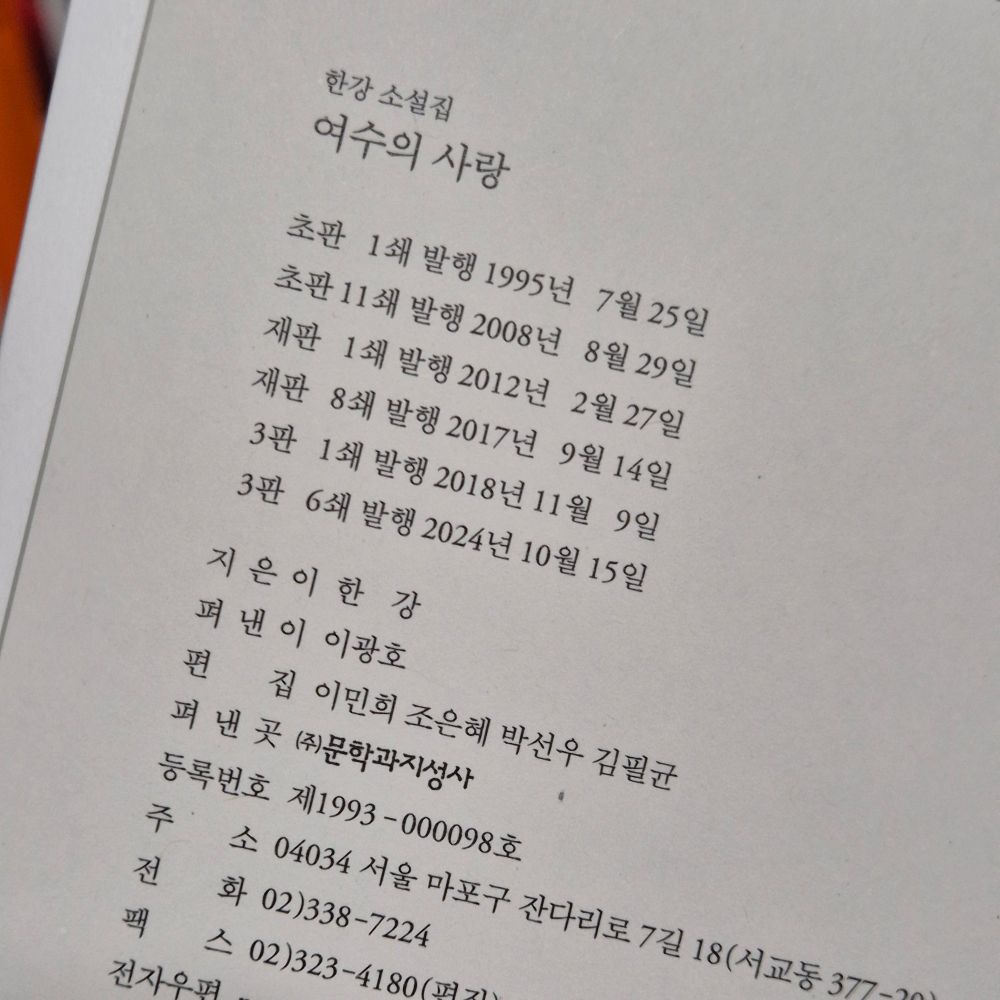 한강 소설집
여수의 사랑
초판 1쇄 발행 1995년 7월 25일
초판 11쇄 발행 2008년 8월 29일
재판 1쇄 발행 2012년 2월 27일
재판 8쇄 발행 2017년 9월 14일
3판 1쇄 발행 2018년 11월 9일
3판 6쇄 발행 2024년 10월 15일
지은이 한강
펴낸이 이광호
편집 이민희 조은혜 박선우 김필균
펴낸곳 ㈜문학과지성사
등록번호 제1993-000098호
주소 04034 서울 마포구 잔다리로 7길 18(서교동 377-20)
전화 02)338-7224
팩스 02)323-4180(편집)
전자우편